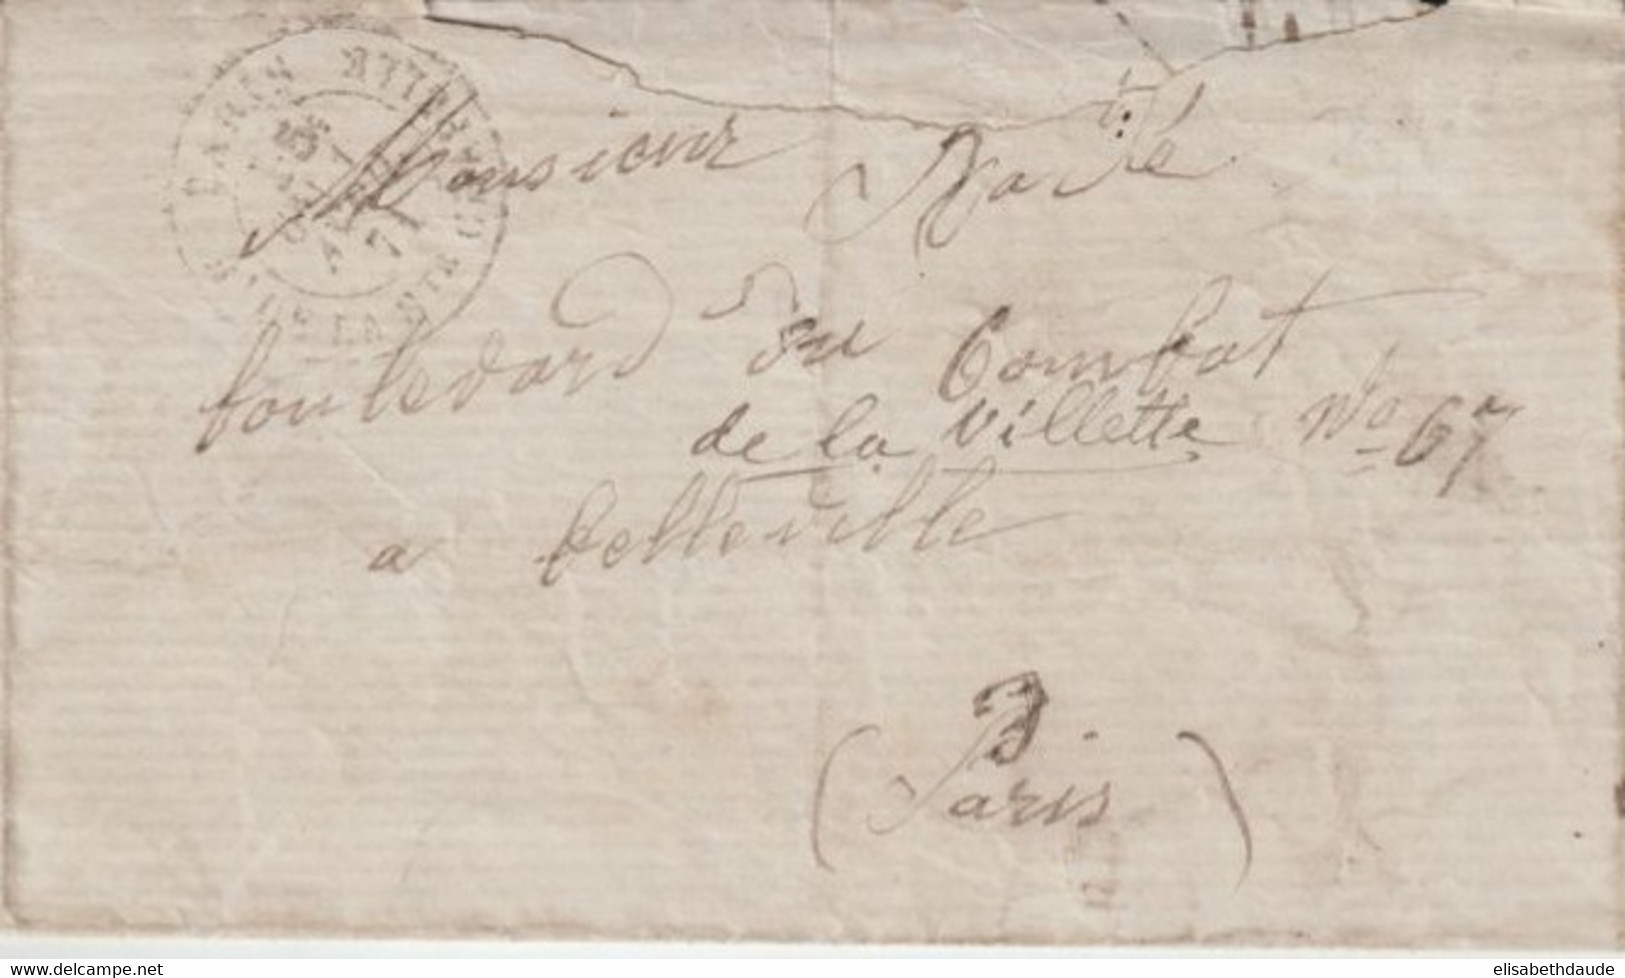 Monsieur
boulevard du Combat
de la Villette No 67
a belleville
(Paris)
PARIS
LA STE C
71
www.delcampe.net
elisabethdaude